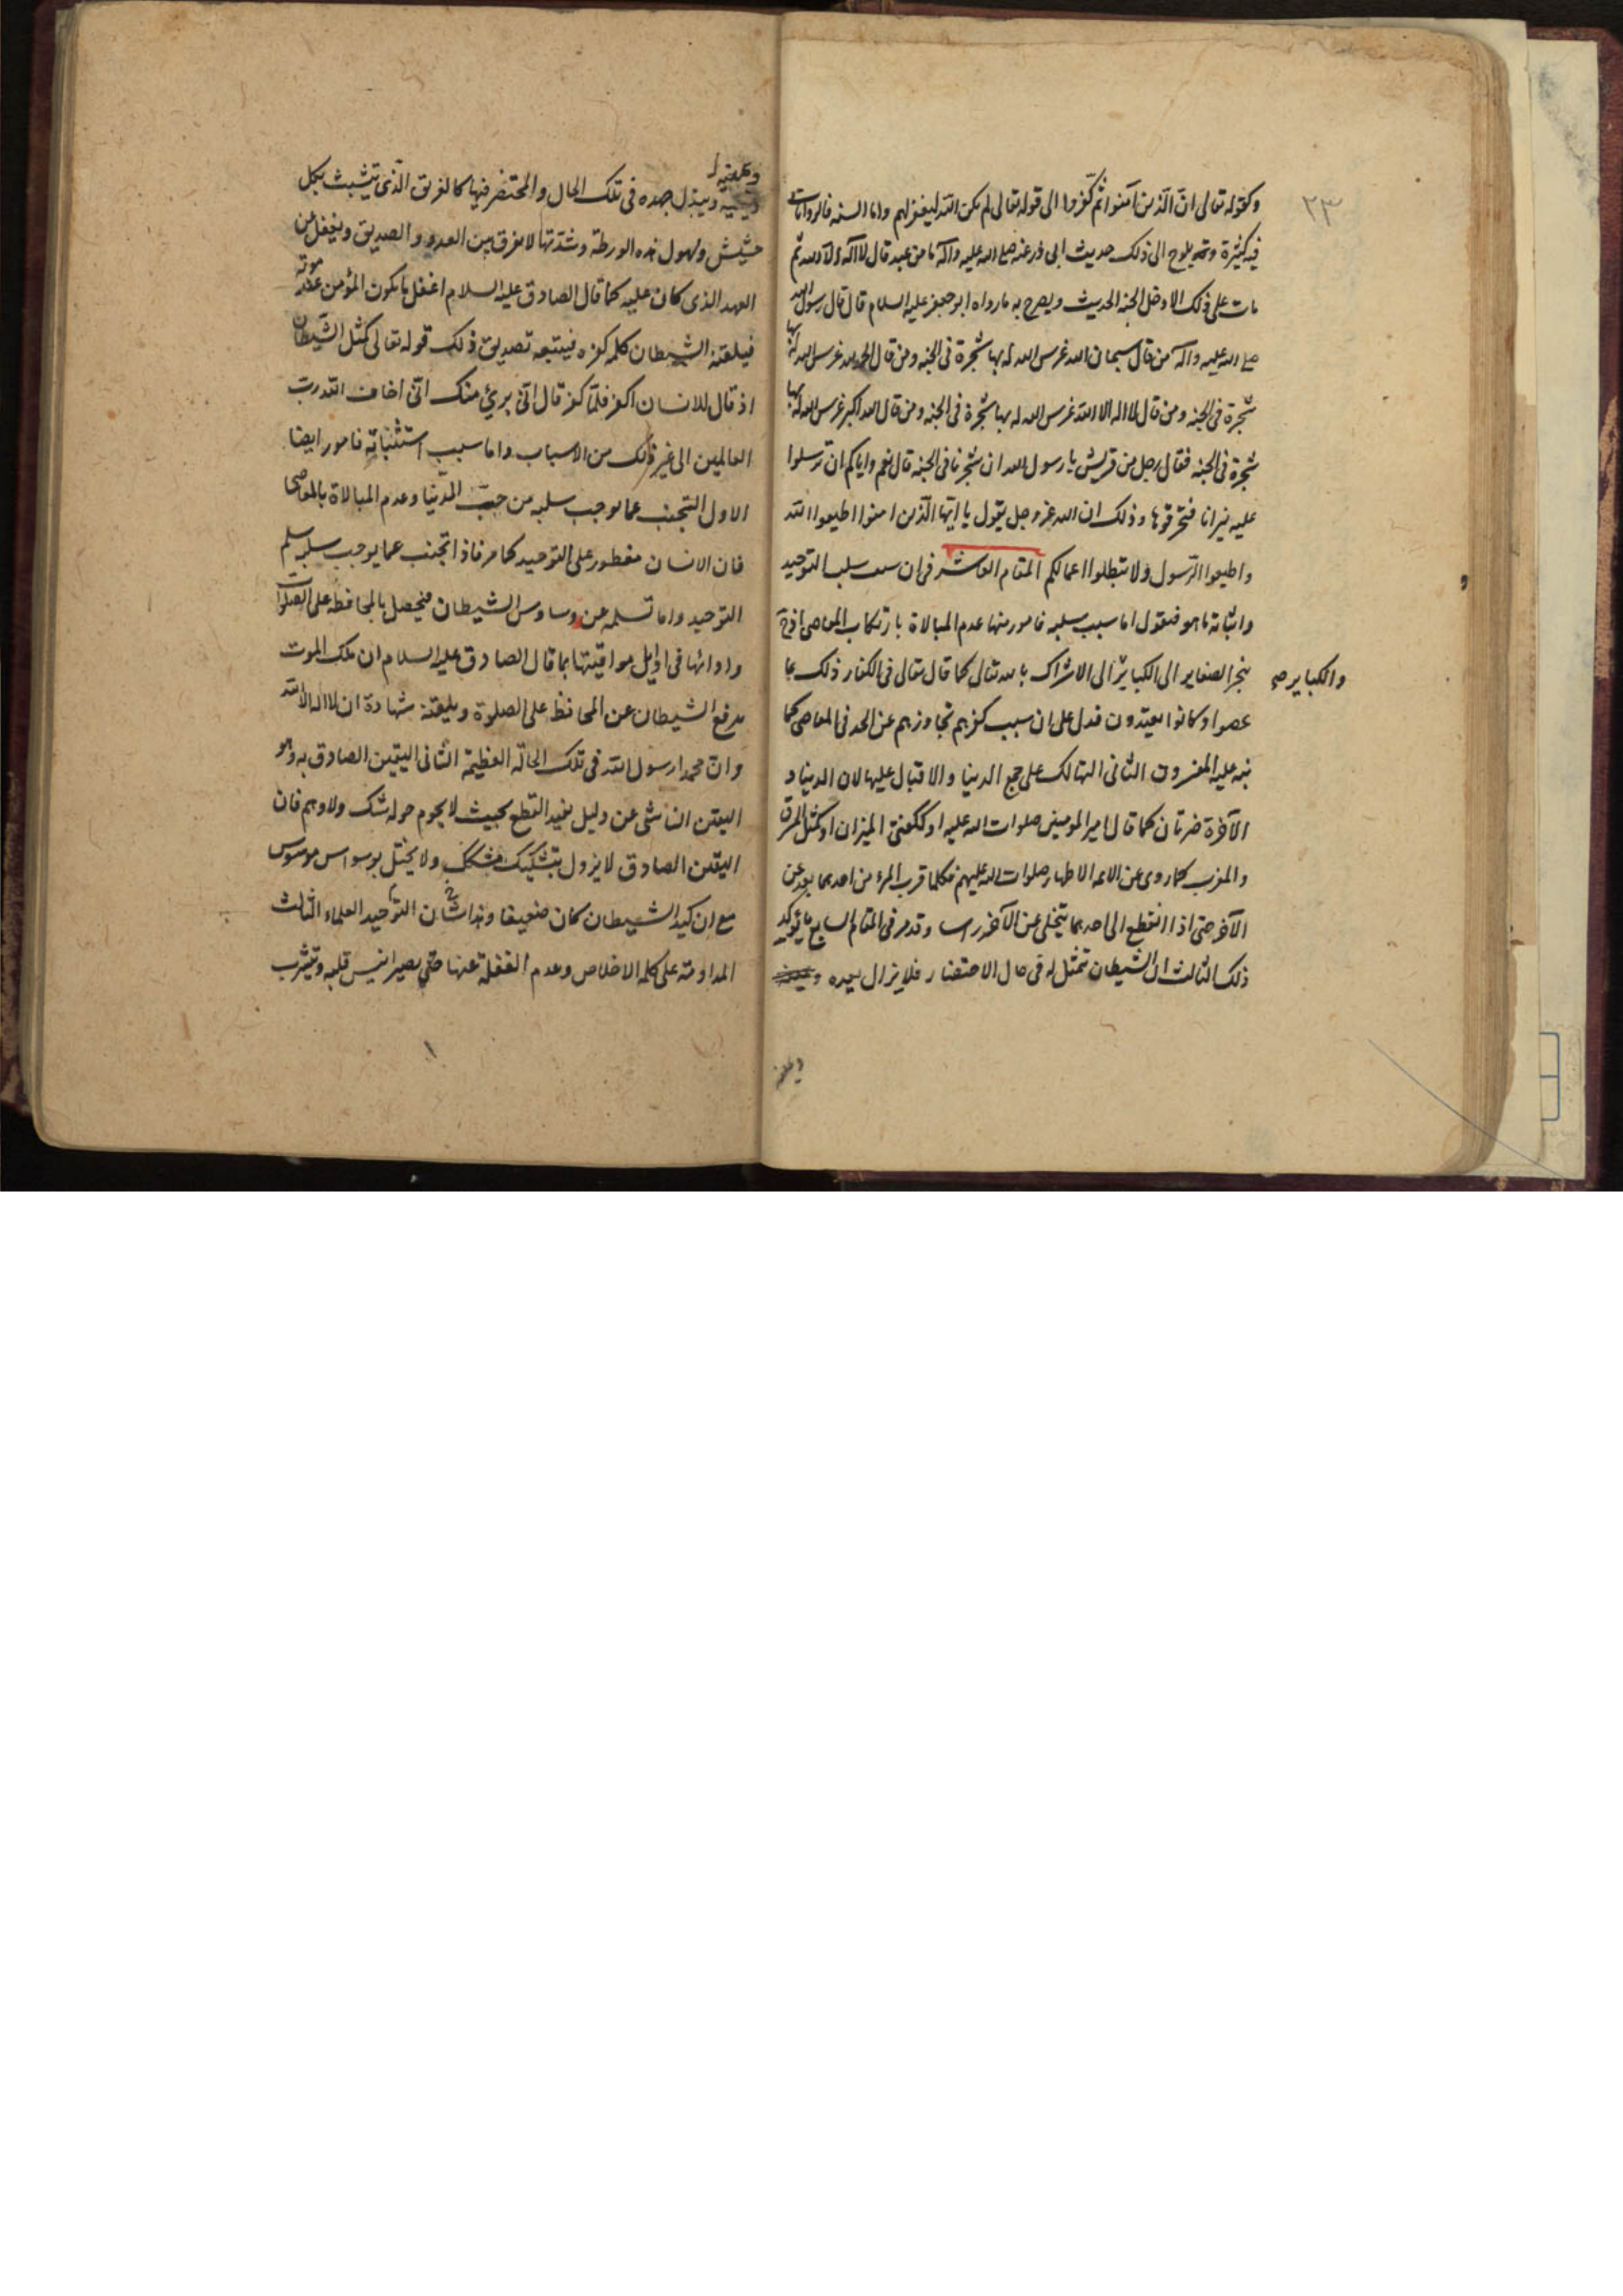 ٢٣
وكقوله تعالى ان الذين آمنوا ثم كفروا الى قوله تعالى لم يكن الله ليغفر لهم واما السنه فالروايات
فيه كثيرة وقد يلوح الى ذلك حديث ابى ذر عنه صلى الله عليه وآله ما من عبد قال لا اله الا الله ثم
مات على ذلك الا دخل الجنه الحديث ويصرح به ما رواه ابو جعفر عليه السلام قال قال رسول الله
صلى الله عليه وآله من قال سبحان الله غرس الله له بها شجرة فى الجنه ومن قال الحمد لله غرس الله له بها
شجرة فى الجنه ومن قال لا اله الا الله غرس الله له بها شجرة فى الجنه ومن قال الله اكبر غرس الله له بها
شجرة فى الجنه فقال رجل من قريش يا رسول الله ان شجرنا فى الجنه قال نعم واياكم ان ترسلوا
عليه نيرانا فتحرقوها وذلك ان الله عز وجل يقول يا ايها الذين امنوا اطيعوا الله
واطيعوا الرسول ولا تبطلوا اعمالكم المقام العاشر فى ان سبب سلب التوحيد
واثباته ما هو فنقول اما سبب سلبه فامور منها عدم المبالاة بارتكاب المعاصى اذ قد
ينجر الصغاير الى الكبائر الى الاشراك بالله تعالى كما قال تعالى فى الكفار ذلك بما
والكباير صح
عصوا وكانوا يعتدون فدل على ان سبب كفرهم تجاوزهم عن الحد فى المعاصى كما
نبه عليه المفسرون الثانى التهالك على جمع الدنيا والاقبال عليها لان الدنيا و
الآخرة ضرتان كما قال امير المومنين صلوات الله عليه او ككفتى الميزان او كمثل المشرق
والمغرب كما روى عن الائمه الاطهار صلوات الله عليهم فكلما قرب المرء من احدهما بعد عن
الآخر حتى اذا انقطع الى احدهما يتخلى عن الآخر راسا وقد مر فى المقام السابع ما يؤكد
ذلك الثالث ان الشيطان تمثل له فى حال الاحتضار فلا يزال يعده
ويمنيه
ويبذل جهده فى تلك الحال والمحتضر فيها كالغريق الذى يتشبث بكل
حشيش ولهول هذه الورطة وشدتها لا يفرق بين العدو والصديق ويغفل عن
العهد الذى كان عليه كما قال الصادق عليه السلام اغفل ما يكون المؤمن عند موته
فيلقنه الشيطان كلمه كفره فيتبعه تصديق ذلك قوله تعالى كمثل الشيطان
اذ قال للانسان اكفر فلما كفر قال انى برئ منك انى اخاف الله رب
العالمين الى غير ذلك من الاسباب واما سبب استثباته فامور ايضا
الاول التجنب عما يوجب سلبه من حب الدنيا وعدم المبالاة بالمعاصى
فان الانسان مفطور على التوحيد كما مر فاذا اتجنب عما يوجب سلبه سلم
التوحيد واما تسلمه عن وساوس الشيطان فيحصل بالمحافظه على الصلوات
وادائها فى اوايل مواقيتها بما قال الصادق عليه السلام ان ملك الموت
يدفع الشيطان عن المحافظ على الصلوة ويلقنه شهادة ان لا اله الا الله
وان محمدا رسول الله فى تلك الحاله العظيمة الثانى اليقين الصادق به وهو
اليقين الناشى عن دليل يفيد القطع بحيث لا يحوم حوله شك ولا وهم فان
اليقين الصادق لا يزول بتشكيك مشكك ولا يختل بوسواس موسوس
مع ان كيد الشيطان كان ضعيفا وهذا شان التوحيد العلماء الثالث
المداومة على كلمه الاخلاص وعدم الغفلة عنها حتى يصير انيس قلبه وتتشرب